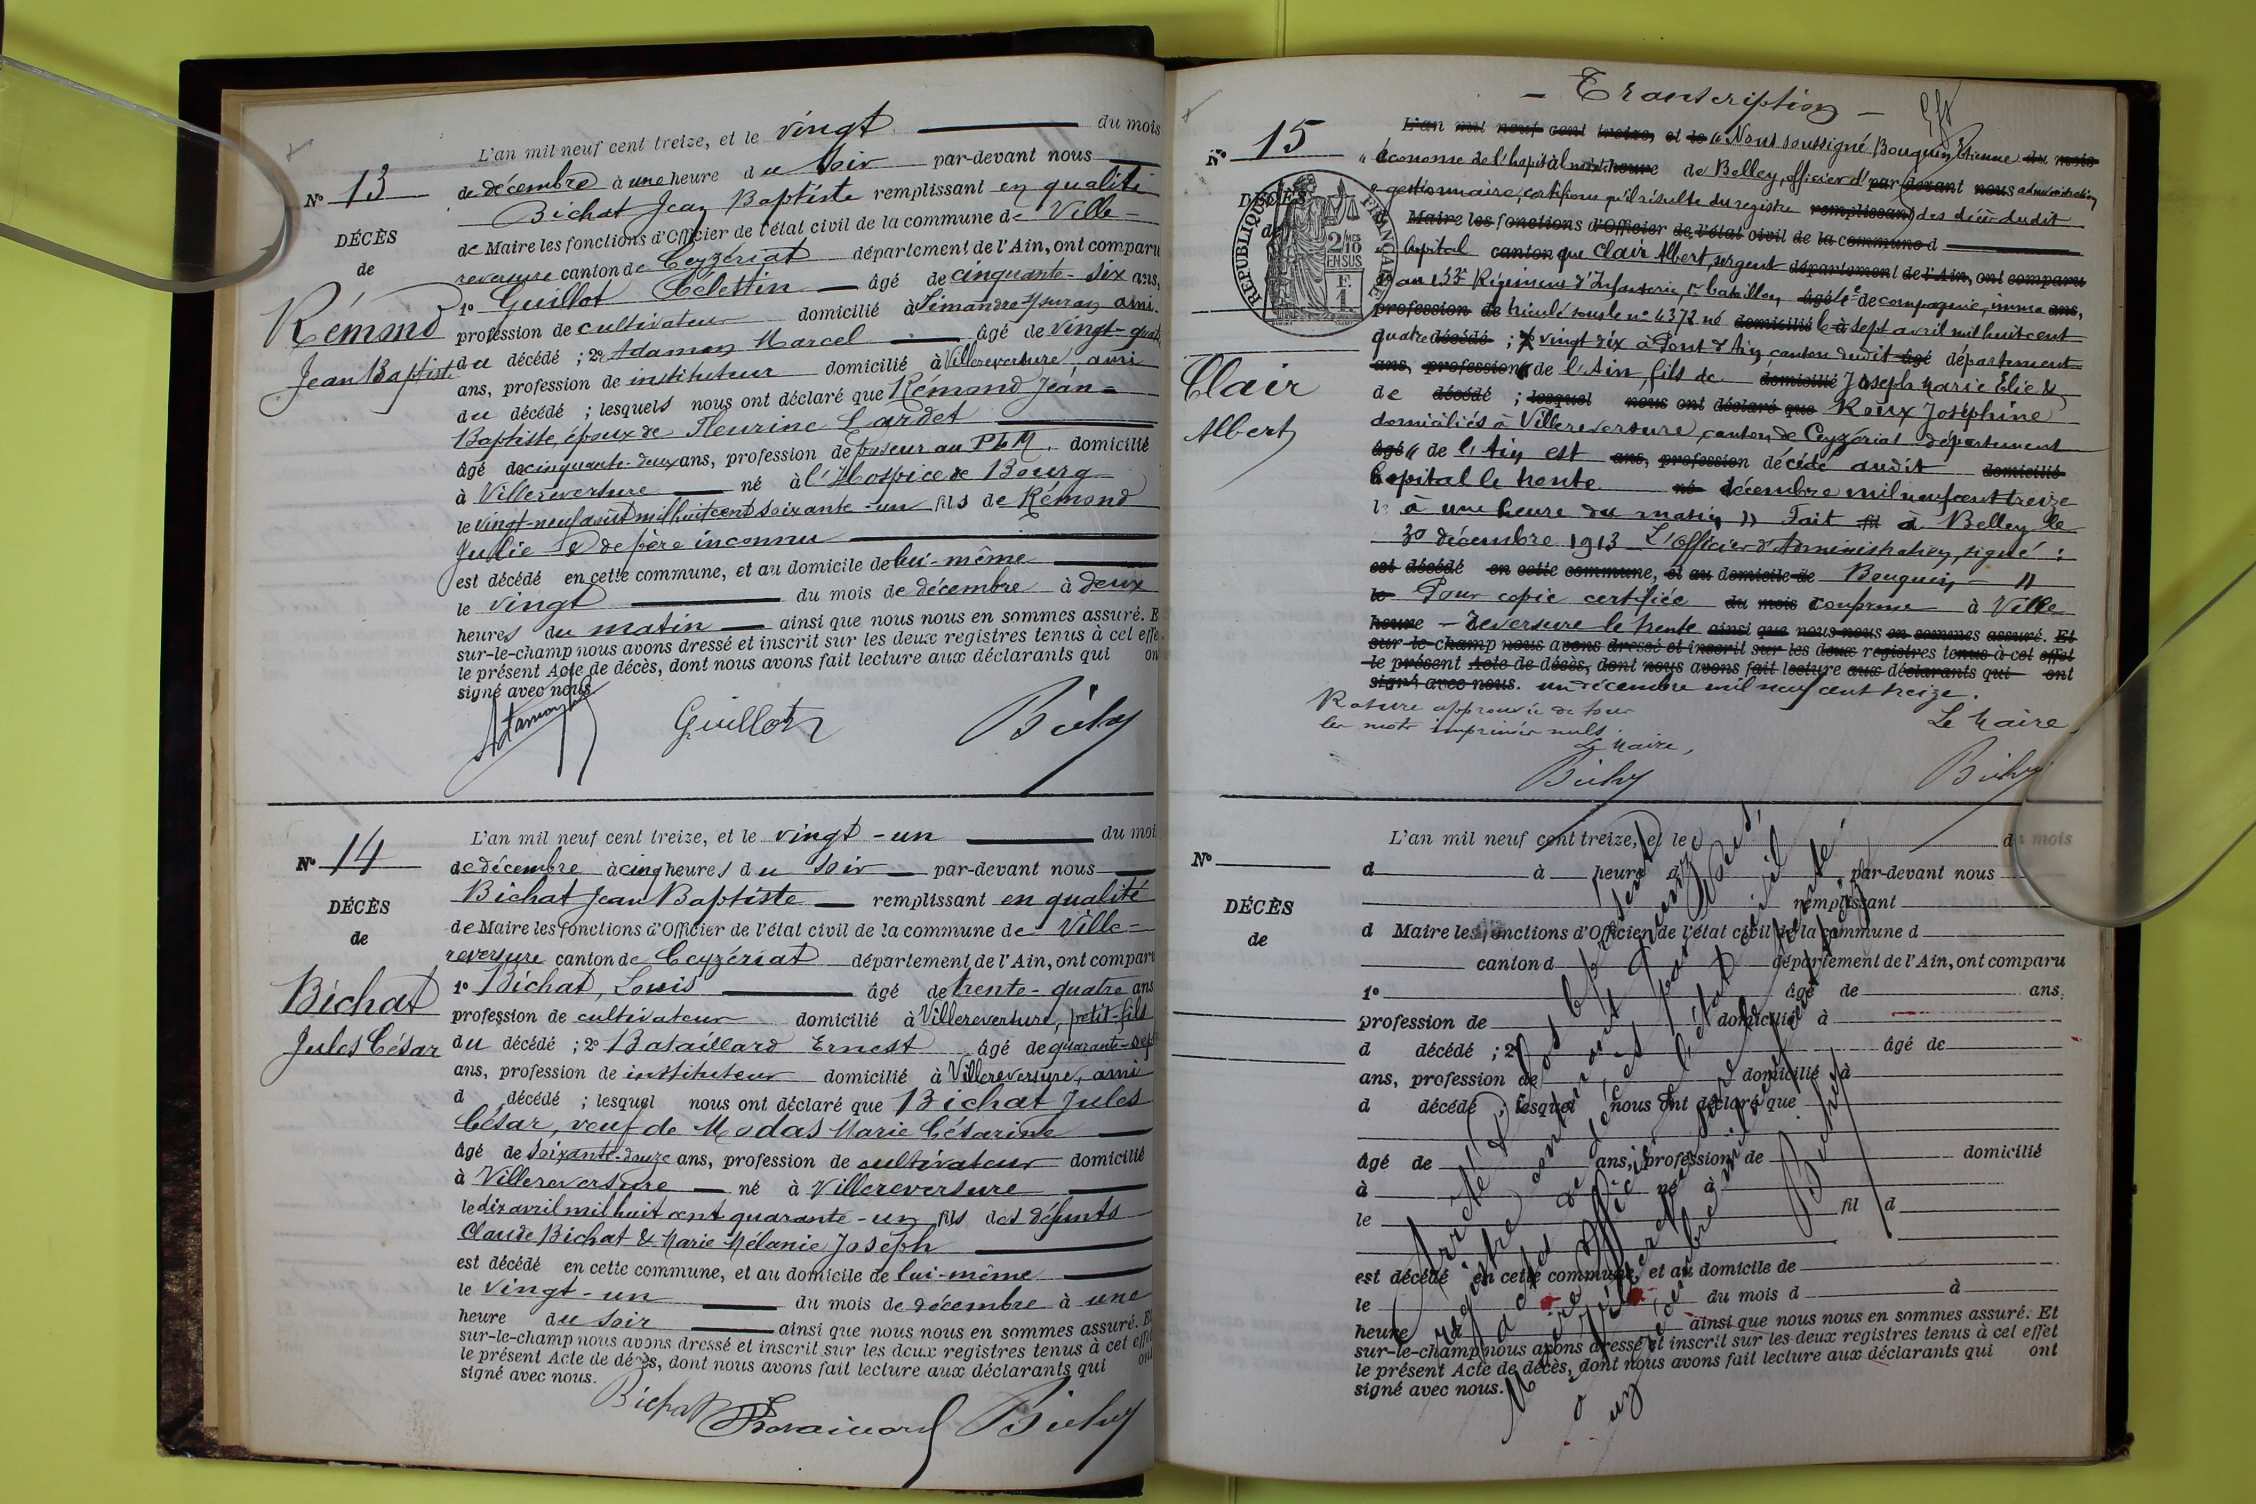 L'an mil neuf cent treize, et le vingt du mois
N° 13
de décembre à une heure du soir par-devant nous
Bichat Jean Baptiste remplissant en qualité
DÉCÈS
de Maire les fonctions d'Officier de l'état civil de la commune de Ville-
de
reversure canton de Ceyzériat département de l'Ain, ont comparu
1° Guillot Célestin âgé de cinquante-six ans,
Rémond
Jean Baptiste
profession de cultivateur domicilié à Simandre s/Suran ami
du décédé ; 2° Adamon Marcel âgé de vingt-quatre
ans, profession de instituteur domicilié à Villereversure, ami
du décédé ; lesquels nous ont déclaré que Rémond Jean-
Baptiste, époux de Fleurine Lardet
âgé de cinquante-deux ans, profession de poseur au PLM, domicilié
à Villereversure né à l'Hospice de Bourg
le vingt-neuf août mil huit cent soixante-un fils de Rémond
Julie & de père inconnu
est décédé en cette commune, et au domicile de lui-même
le vingt du mois de décembre à deux
heures du matin ainsi que nous nous en sommes assuré. E
sur-le-champ nous avons dressé et inscrit sur les deux registres tenus à cet effe
le présent Acte de décès, dont nous avons fait lecture aux déclarants qui on
signé avec nous
Guillot
L'an mil neuf cent treize, et le vingt-un du moi
N° 14
de décembre à cinq heures du soir par-devant nous
Bichat Jean Baptiste remplissant en qualité
DÉCÈS
de Maire les fonctions d'Officier de l'état civil de la commune de Ville-
de
reversure canton de Ceyzériat département de l'Ain, ont comparu
Bichat
Jules César
1° Bichat, Louis âgé de trente-quatre ans
profession de cultivateur domicilié à Villereversure, petit-fils
du décédé ; 2° Bataillard Ernest âgé de quarante-sept
ans, profession de instituteur domicilié à Villereversure, ami
d décédé ; lesquel nous ont déclaré que Bichat Jules
César, veuf de Modas Marie Césarine
âgé de soixante-douze ans, profession de cultivateur domicilié
à Villereversure né à Villereversure
le dix avril mil huit cent quarante-un fils des défunts
Claude Bichat & Marie Mélanie Joseph
est décédé en cette commune, et au domicile de lui-même
le vingt-un du mois de décembre à une
heure du soir ainsi que nous nous en sommes assuré. E
sur-le-champ nous avons dressé et inscrit sur les deux registres tenus à cet effe
le présent Acte de décès, dont nous avons fait lecture aux déclarants qui on
signé avec nous.
Bichat
- Transcription -
N° 15
L'an mil neuf cent treize, et le "Nous soussigné Bouquin Etienne du mois
" économe de l'hôpital heure de Belley, officier d' par-devant nous administration
DÉCÈS
de
RÉPUBLIQUE FRANÇAISE
2/10
EN SUS
F. 1
gestionnaire, certifions qu'il résulte du registre remplissant des décès dudit
Maire les fonctions d'Officier de l'état civil de la commune d
hôpital canton que Clair Albert, sergent département de l'Ain, ont comparu
1° au 133e Régiment d'Infanterie, 1er bataillon, âgé 4e de compagnie, imma ans,
profession de triculé sous le n° 4372 né domicilié le à sept avril mil huit cent
quatre décédé ; 2° vingt dix à Pont d'Ain, canton dudit âgé département
ans, profession de l'Ain, fils de domicilié Joseph Marie Elie &
Clair
Albert
de décédé ; lesquel nous ont déclaré que Roux Joséphine
domiciliés à Villereversure, canton de Ceyzériat département
âgé de l'Ain est ans, profession décédé audit domicilié
hôpital le trente né décembre mil neuf cent treize
à une heure du matin " Fait fil à Belley le
30 décembre 1913 L'officier d'Administration, signé :
est décédé en cette commune, et au domicile de Bouquin - "
le Pour copie certifiée du mois conforme à Ville
heure - reversure le trente ainsi que nous nous en sommes assuré. Et
sur-le-champ nous avons dressé et inscrit sur les deux registres tenus à cet effet
le présent Acte de décès, dont nous avons fait lecture aux déclarants qui ont
signé avec nous. un décembre mil neuf cent treize.
Rature approuvée de tous
les mots imprimés nuls
Le Maire,
Le Maire
L'an mil neuf cent treize, et le du mois
N°
d à heure d par-devant nous
remplissant
DÉCÈS
de
d Maire les fonctions d'Officier de l'état civil de la commune d
canton d département de l'Ain, ont comparu
1° âgé de ans,
profession de domicilié à
d décédé ; 2° âgé de
ans, profession de domicilié à
d décédé lesquel nous ont déclaré que
âgé de ans, profession de domicilié
à né à
le fil d
est décédé en cette commune, et au domicile de
le du mois d à
heure d ainsi que nous nous en sommes assuré. Et
sur-le-champ nous avons dressé et inscrit sur les deux registres tenus à cet effet
le présent Acte de décès, dont nous avons fait lecture aux déclarants qui ont
signé avec nous.
Arrêté & clos le présent
registre contenant quinze
actes de décès par nous,
Maire officier de l'état civil
à Villereversure le trente
un décembre mil neuf cent treize